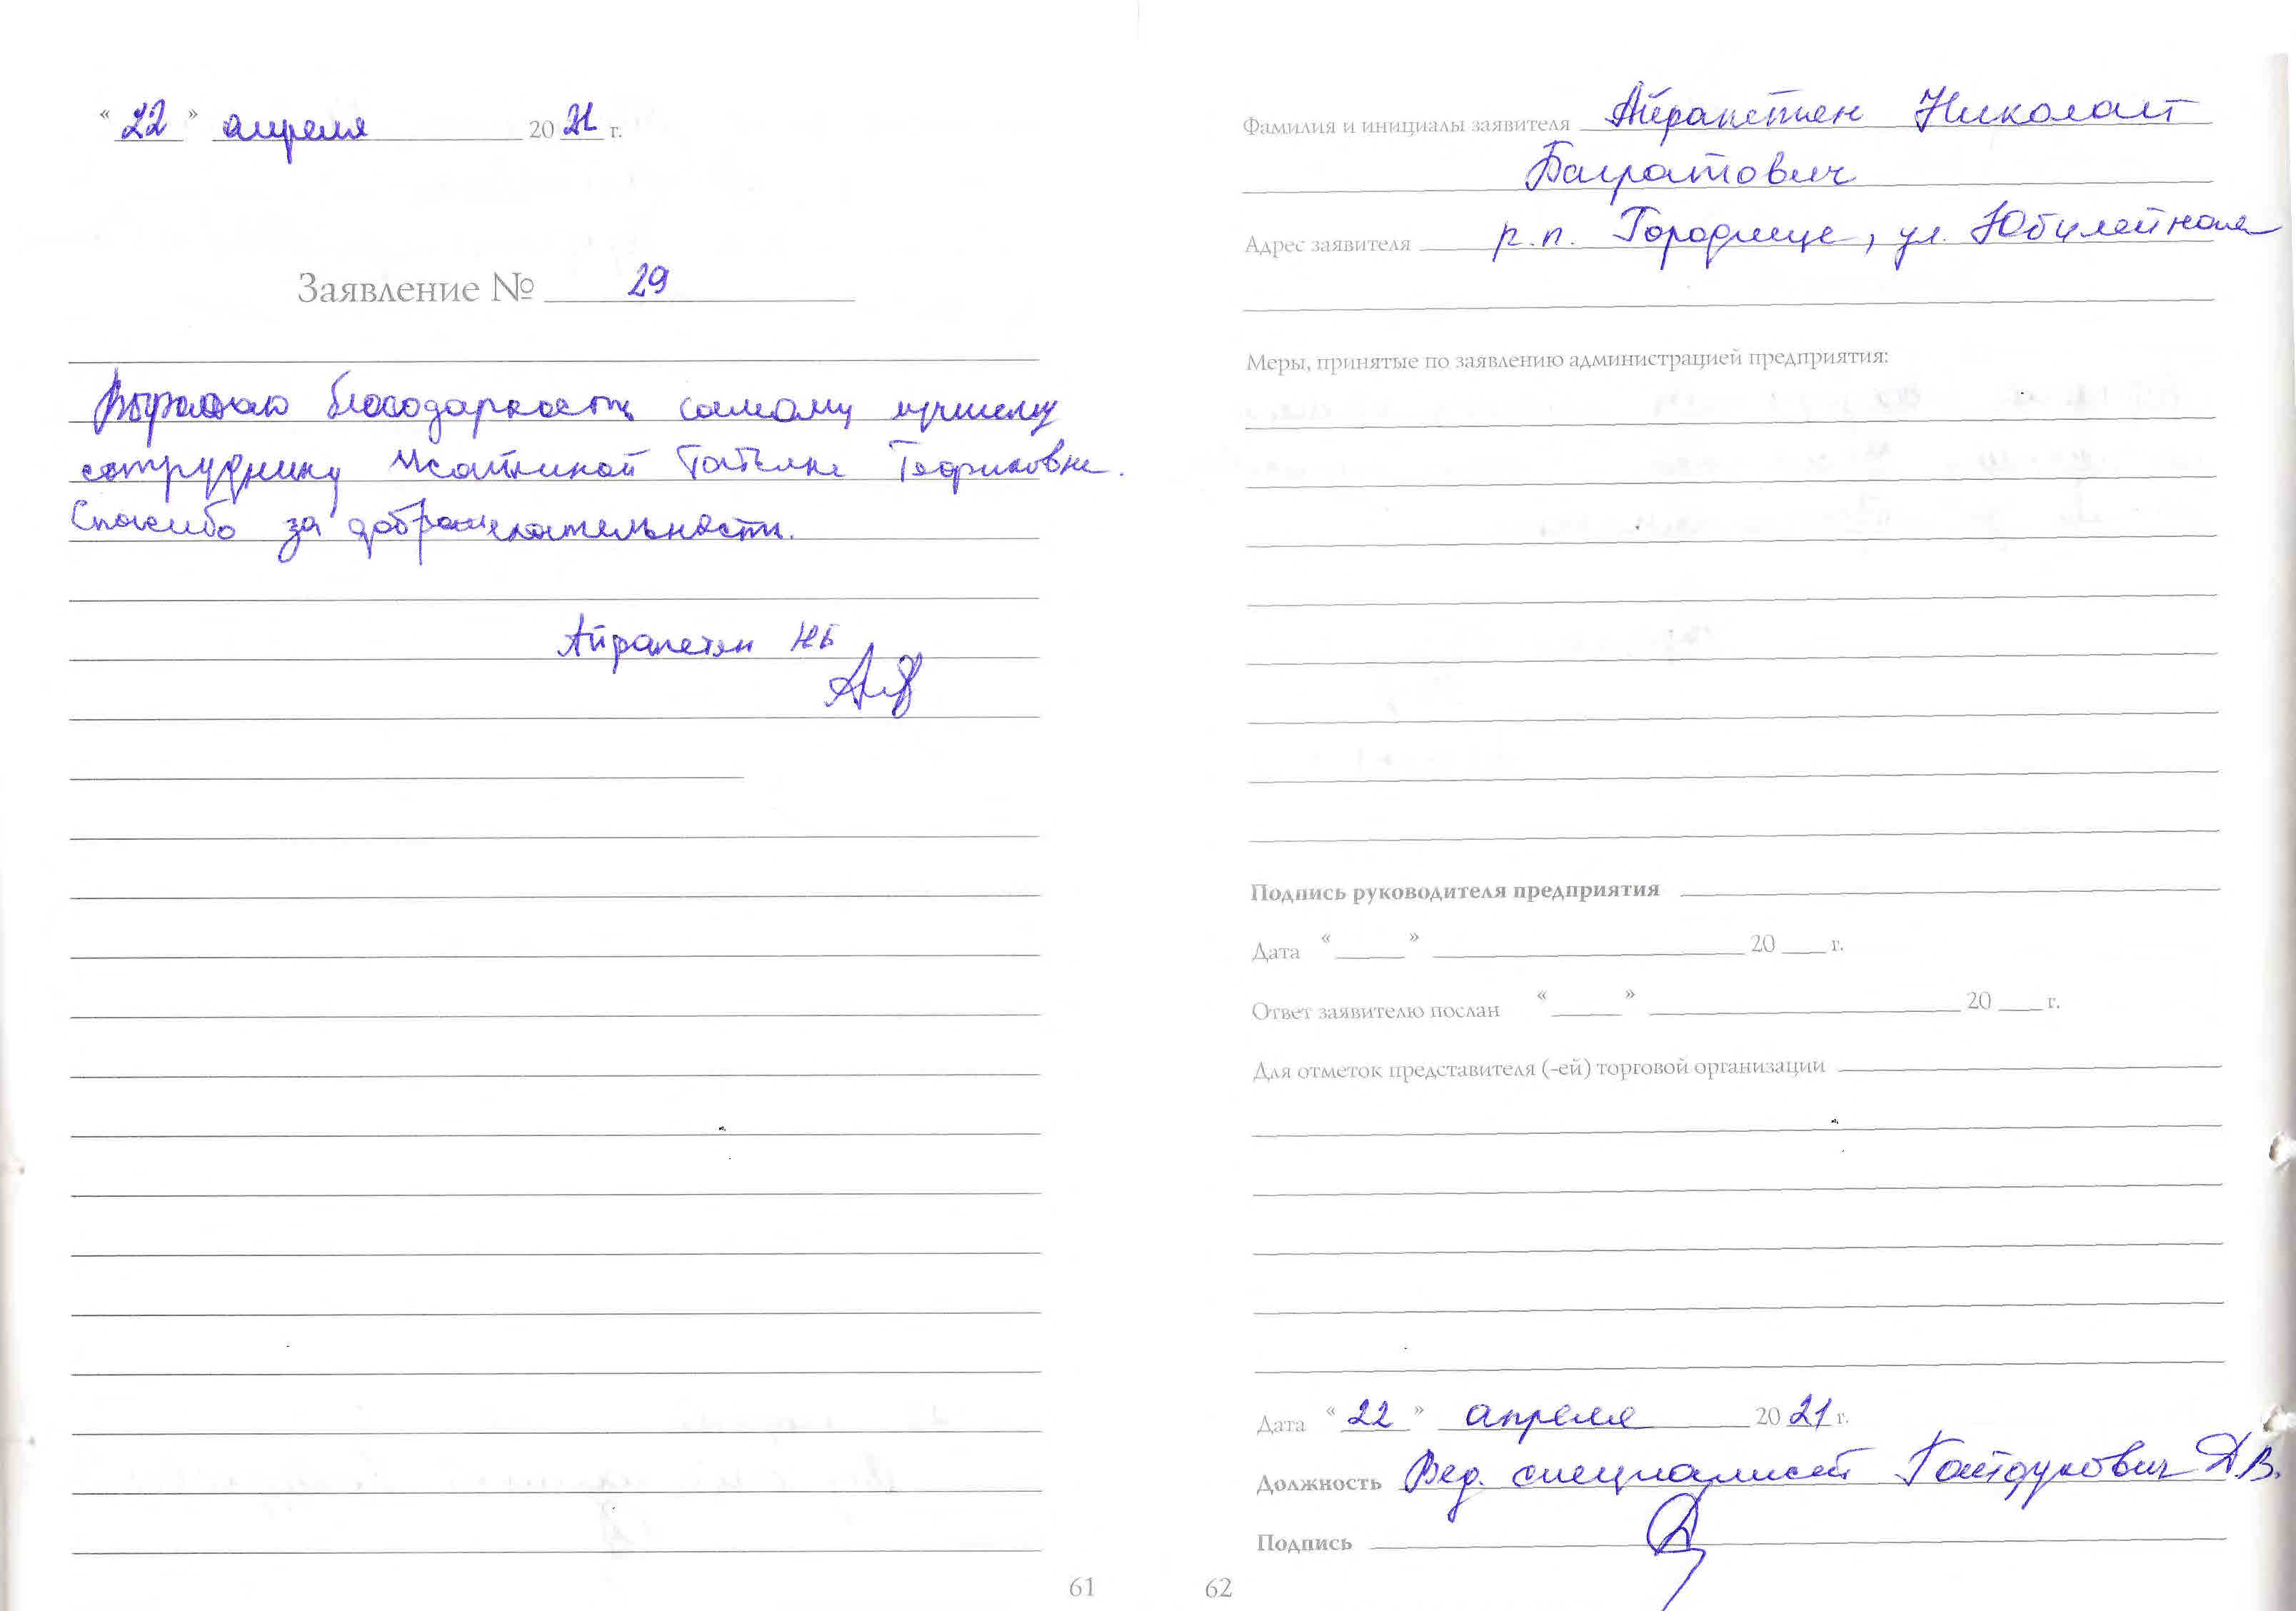 « 22 » апреля 2021 г.
Заявление № 29
Выражаю благодарность самому лучшему
сотруднику Татьяне
Спасибо за доброжелательность.
Айрапетян НБ
61
Фамилия и инициалы заявителя Айрапетян Николай
Багратович
Адрес заявителя р.п. Городище, ул. Юбилейная
Меры, принятые по заявлению администрацией предприятия:
Подпись руководителя предприятия
Дата « » 20 г.
Ответ заявителю послан « » 20 г.
Для отметок представителя (-ей) торговой организации
Дата « 22 » апреля 2021 г.
Должность Вед. специалист Гайдукович Д.В.
Подпись
62